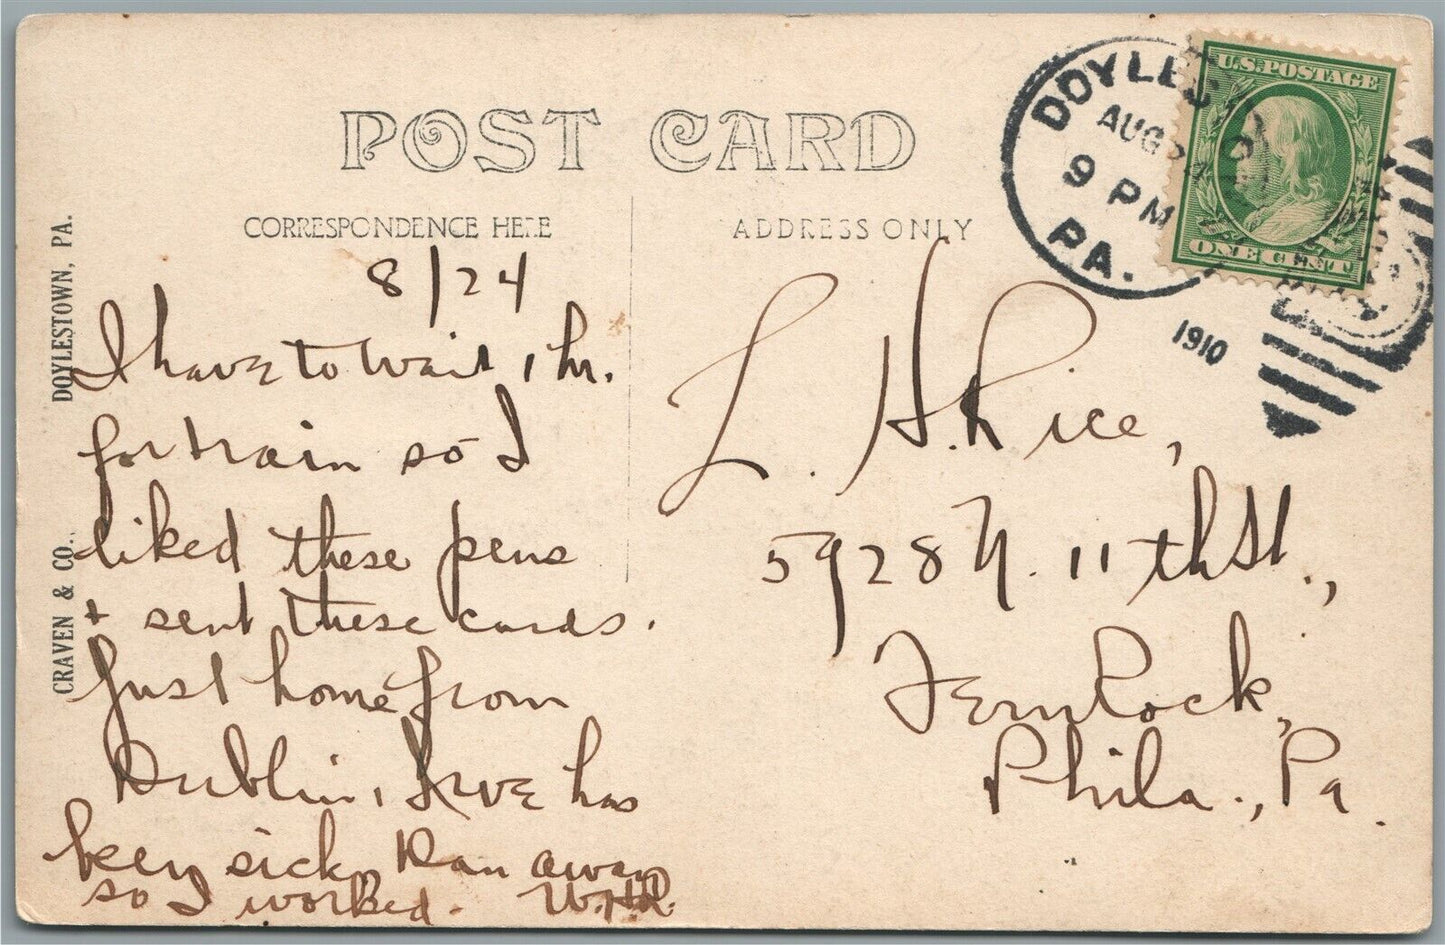 POST CARD
CORRESPONDENCE HERE
ADDRESS ONLY
CRAVEN & CO., DOYLESTOWN, PA.
DOYLES
AUG
9 PM
PA.
1910
U.S. POSTAGE
ONE CENT
8/24
I have to wait 1 hr.
for train so I
liked these pens
+ sent these cards.
Just home from
Dublin,
has
been sick, Dan away
so I worked. W.H.R.
L. H. Rice,
5928 N. 11th St.,
Fern Rock,
Phila., Pa.